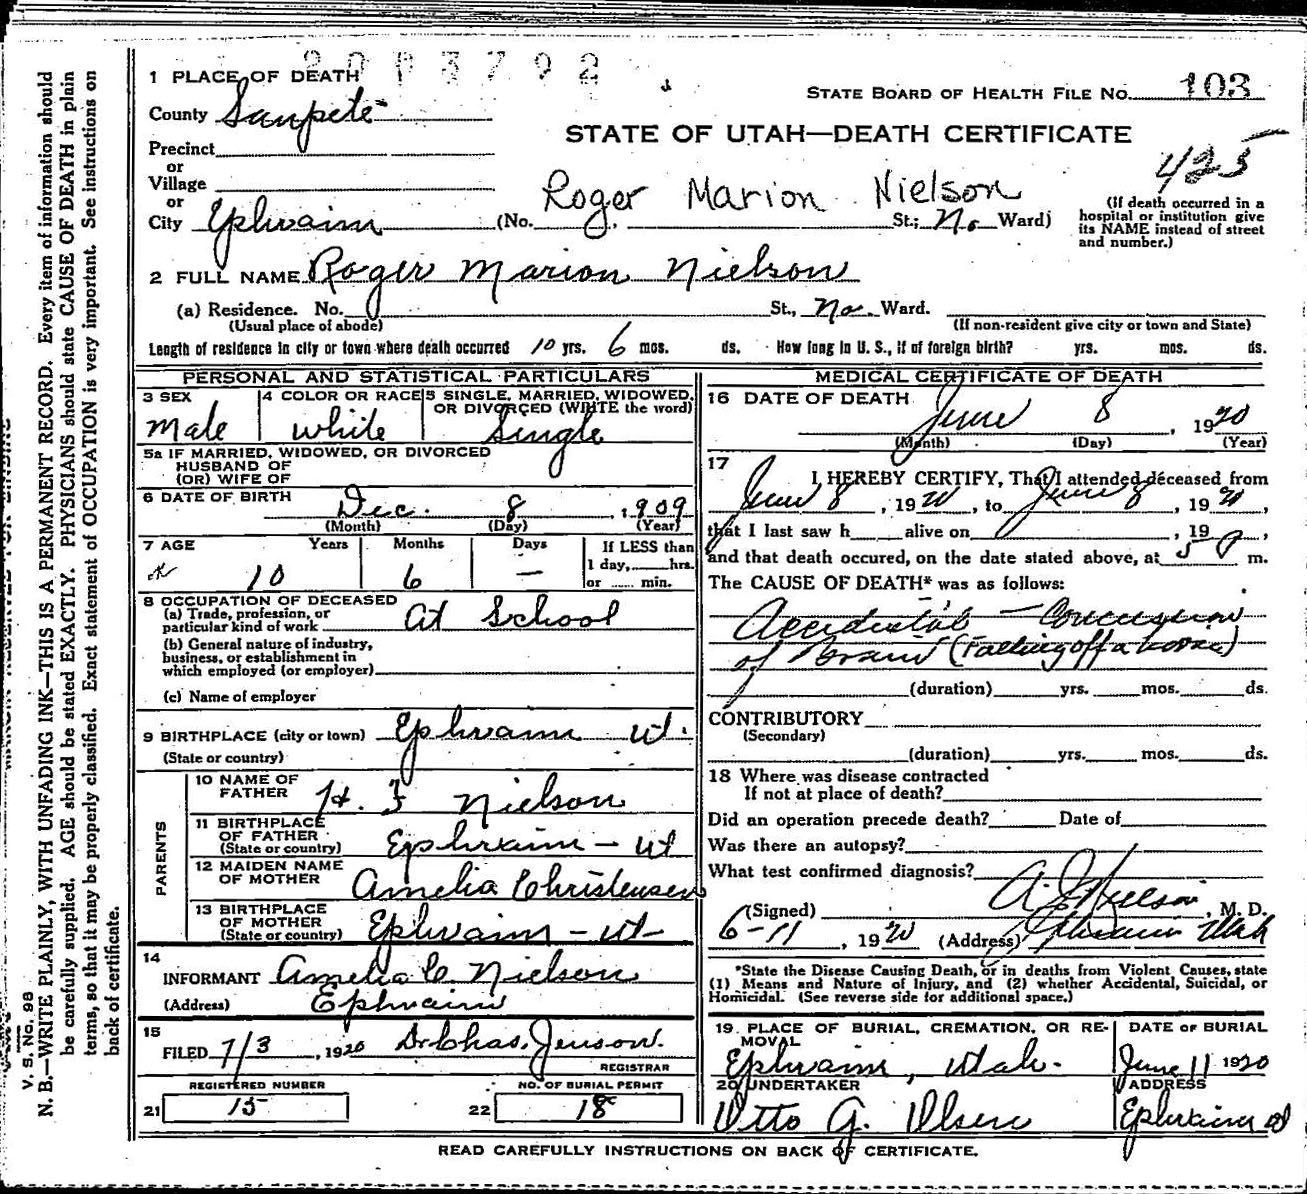 2003792
1 PLACE OF DEATH
STATE BOARD OF HEALTH FILE No. 103
County Sanpete
STATE OF UTAH—DEATH CERTIFICATE
425
Precinct
or
Village
or
City Ephraim
Roger Marion Nielson
(No. St.; No. Ward)
(If death occurred in a
hospital or institution give
its NAME instead of street
and number.)
2 FULL NAME Roger Marion Nielson
(a) Residence. No. St., No. Ward.
(Usual place of abode)
(If non-resident give city or town and State)
Length of residence in city or town where death occurred 10 yrs. 6 mos. ds. How long in U. S., if of foreign birth? yrs. mos. ds.
PERSONAL AND STATISTICAL PARTICULARS
3 SEX
Male
4 COLOR OR RACE
white
5 SINGLE, MARRIED, WIDOWED,
OR DIVORCED (WRITE the word)
Single
5a IF MARRIED, WIDOWED, OR DIVORCED
HUSBAND OF
(OR) WIFE OF
6 DATE OF BIRTH
Dec. 8, 1909
(Month) (Day) (Year)
7 AGE
Years Months Days
10 6 —
If LESS than
1 day, hrs.
or min.
8 OCCUPATION OF DECEASED
(a) Trade, profession, or
particular kind of work At School
(b) General nature of industry,
business, or establishment in
which employed (or employer)
(c) Name of employer
9 BIRTHPLACE (city or town) Ephraim Ut.
(State or country)
PARENTS
10 NAME OF
FATHER H. F Nielson
11 BIRTHPLACE
OF FATHER
(State or country) Ephraim - Ut
12 MAIDEN NAME
OF MOTHER Amelia Christensen
13 BIRTHPLACE
OF MOTHER
(State or country) Ephraim - Ut
14
INFORMANT Amelia C Nielson
(Address) Ephraim
15
FILED 7/3, 1920 Dr Chas. Jenson.
REGISTRAR
REGISTERED NUMBER
21 15
NO. OF BURIAL PERMIT
22 18
MEDICAL CERTIFICATE OF DEATH
16 DATE OF DEATH
June 8, 1920
(Month) (Day) (Year)
17
I HEREBY CERTIFY, That I attended deceased from
June 8, 1920, to June 8, 1920,
that I last saw h alive on , 19 ,
and that death occured, on the date stated above, at 5 P m.
The CAUSE OF DEATH* was as follows:
Accidental — Concussion
of Brain (Falling off a horse)
(duration) yrs. mos. ds.
CONTRIBUTORY
(Secondary)
(duration) yrs. mos. ds.
18 Where was disease contracted
If not at place of death?
Did an operation precede death? Date of
Was there an autopsy?
What test confirmed diagnosis?
(Signed) A. J. Nielson, M. D.
6-11, 1920 (Address) Ephraim Utah
*State the Disease Causing Death, or in deaths from Violent Causes, state
(1) Means and Nature of Injury, and (2) whether Accidental, Suicidal, or
Homicidal. (See reverse side for additional space.)
19 PLACE OF BURIAL, CREMATION, OR RE-
MOVAL
Ephraim, Utah.
DATE OF BURIAL
June 11 1920
20 UNDERTAKER
Otto A. Olsen
ADDRESS
Ephraim Ut
READ CAREFULLY INSTRUCTIONS ON BACK OF CERTIFICATE.
V. S. No. 98
N. B.—WRITE PLAINLY, WITH UNFADING INK—THIS IS A PERMANENT RECORD. Every item of information should
be carefully supplied. AGE should be stated EXACTLY. PHYSICIANS should state CAUSE OF DEATH in plain
terms, so that it may be properly classified. Exact statement of OCCUPATION is very important. See instructions on
back of certificate.